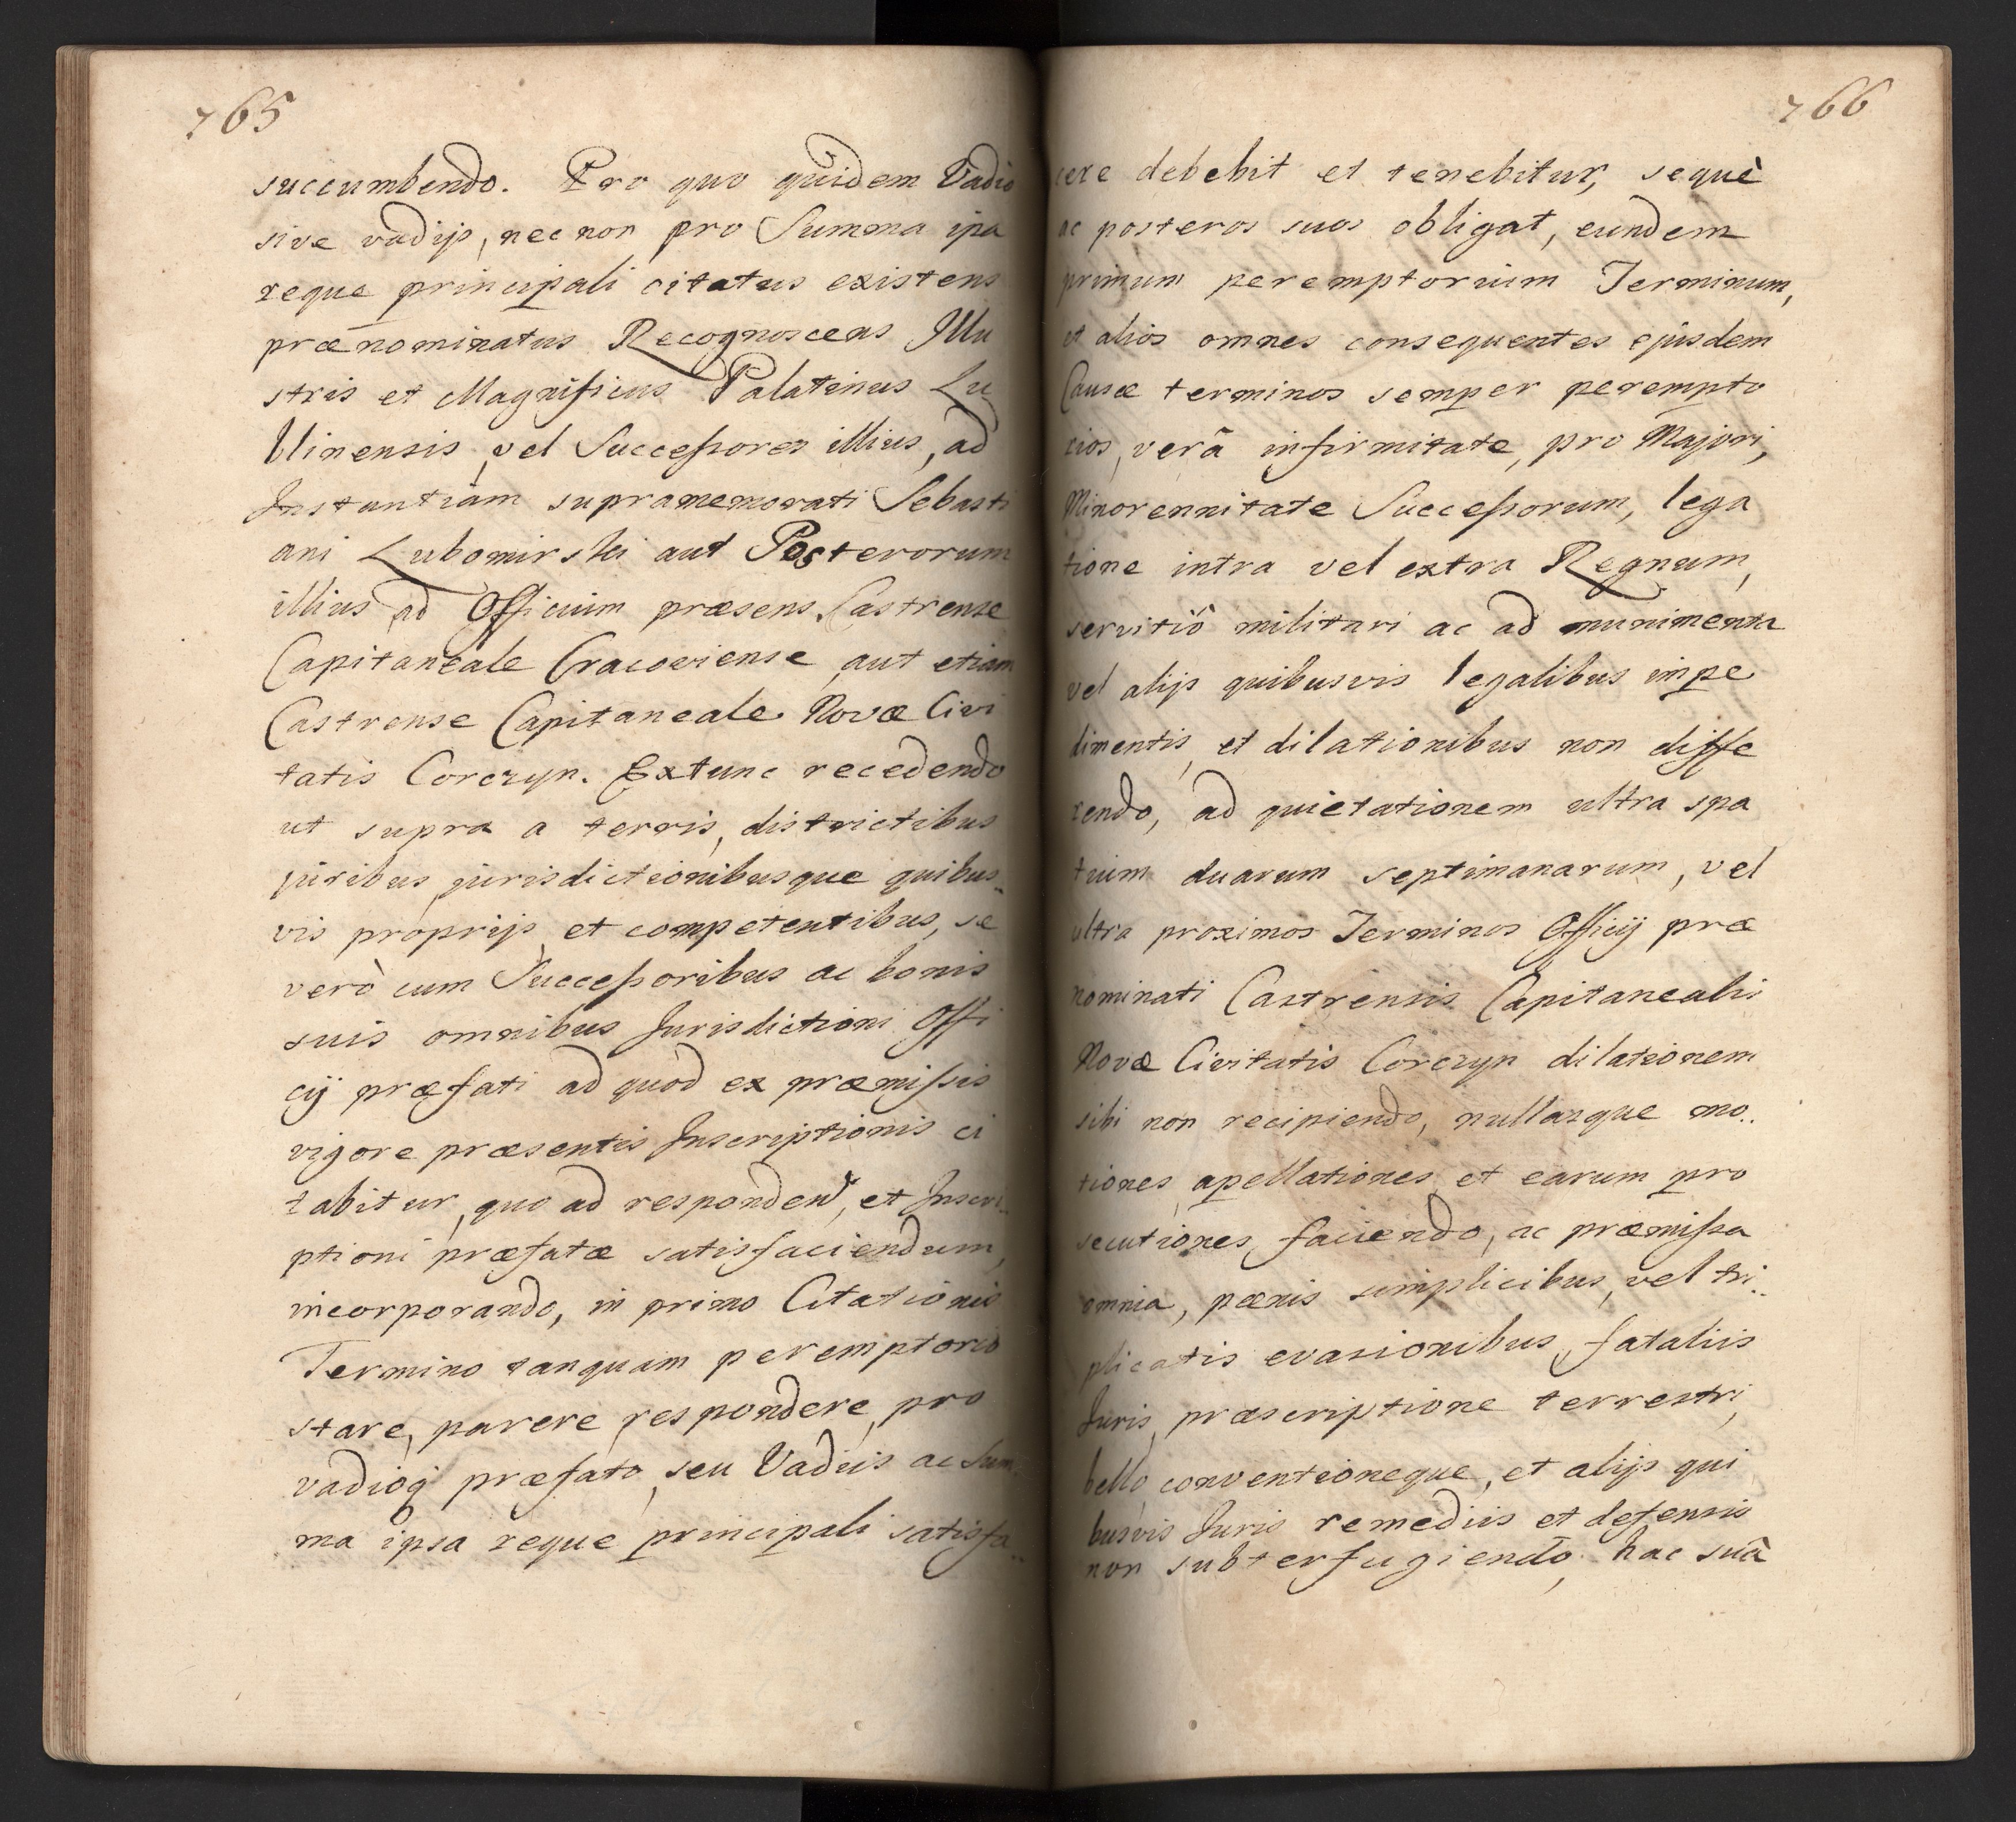 765
succumbendo. Pro quo quidem Vadio
sive vadijs, nec non pro Summa ipa
reque principali citatus existens
prænominatus Recognoscens Illu
stris et Magnificus Palatinus Lu
blinensis, vel Successores illius, ad
Instantiam supramemorati Sebasti
ani Lubomirski aut Posterorum
illius ad Officium præsens Castrense
Capitaneale Cracoviense, aut etiam
Castrense Capitaneale Novæ Civi
tatis Corczyn. Extunc recedendo
ut supra a terris, districtibus
juribus, jurisdictionibusque quibus„
vis proprijs, et competentibus, se
verò cum Successoribus ac bonis
suis omnibus Jurisdictioni Offi
cij præfati ad quod ex præmissis
vigore præsentis Inscriptionis ci
tabitur, quo ad responden, et Inscri„
ptioni præfatæ satisfaciendum,
incorporando, in primo Citationis
Termino tanquam peremptorio
stare, parere, respondere, pro
vadioq præfato, seu Vadiis ac Sum„
ma ipsa reque principali satisfa„
766
cere debebit et tenebitur, sequè
ac posteros suos obligat, eundem
primum peremptorium Terminum,
et alios omnes consequentes ejusdem
Causæ terminos semper perempto
rios, verâ infirmitate, pro Majori,
Minorennitate Successorum, lega
tione intra vel extra Regnum,
servitiô militari ac ad munimenta
vel alijs quibusvis legalibus impe
dimentis, et dilationibus non diffe
rendo, ad quietationem ultra spa
tium duarum septimanarum, vel
ultra proximos Terminos Officij præ
nominati Castrensis Capitanealis
Novæ Civitatis Corczyn dilationem
sibi non recipiendo, nullasque mo„
tiones, apellationes, et earum pro
secutiones, faciendo, ac præmissa
omnia, pœnis simplicibus, vel tri„
plicatis evasionibus, fataliis
Juris, præscriptione terrestri,
bello, conventioneque, et alijs qui
busvis Juris remediis et defensis
non subterfugiendo, hac suâ